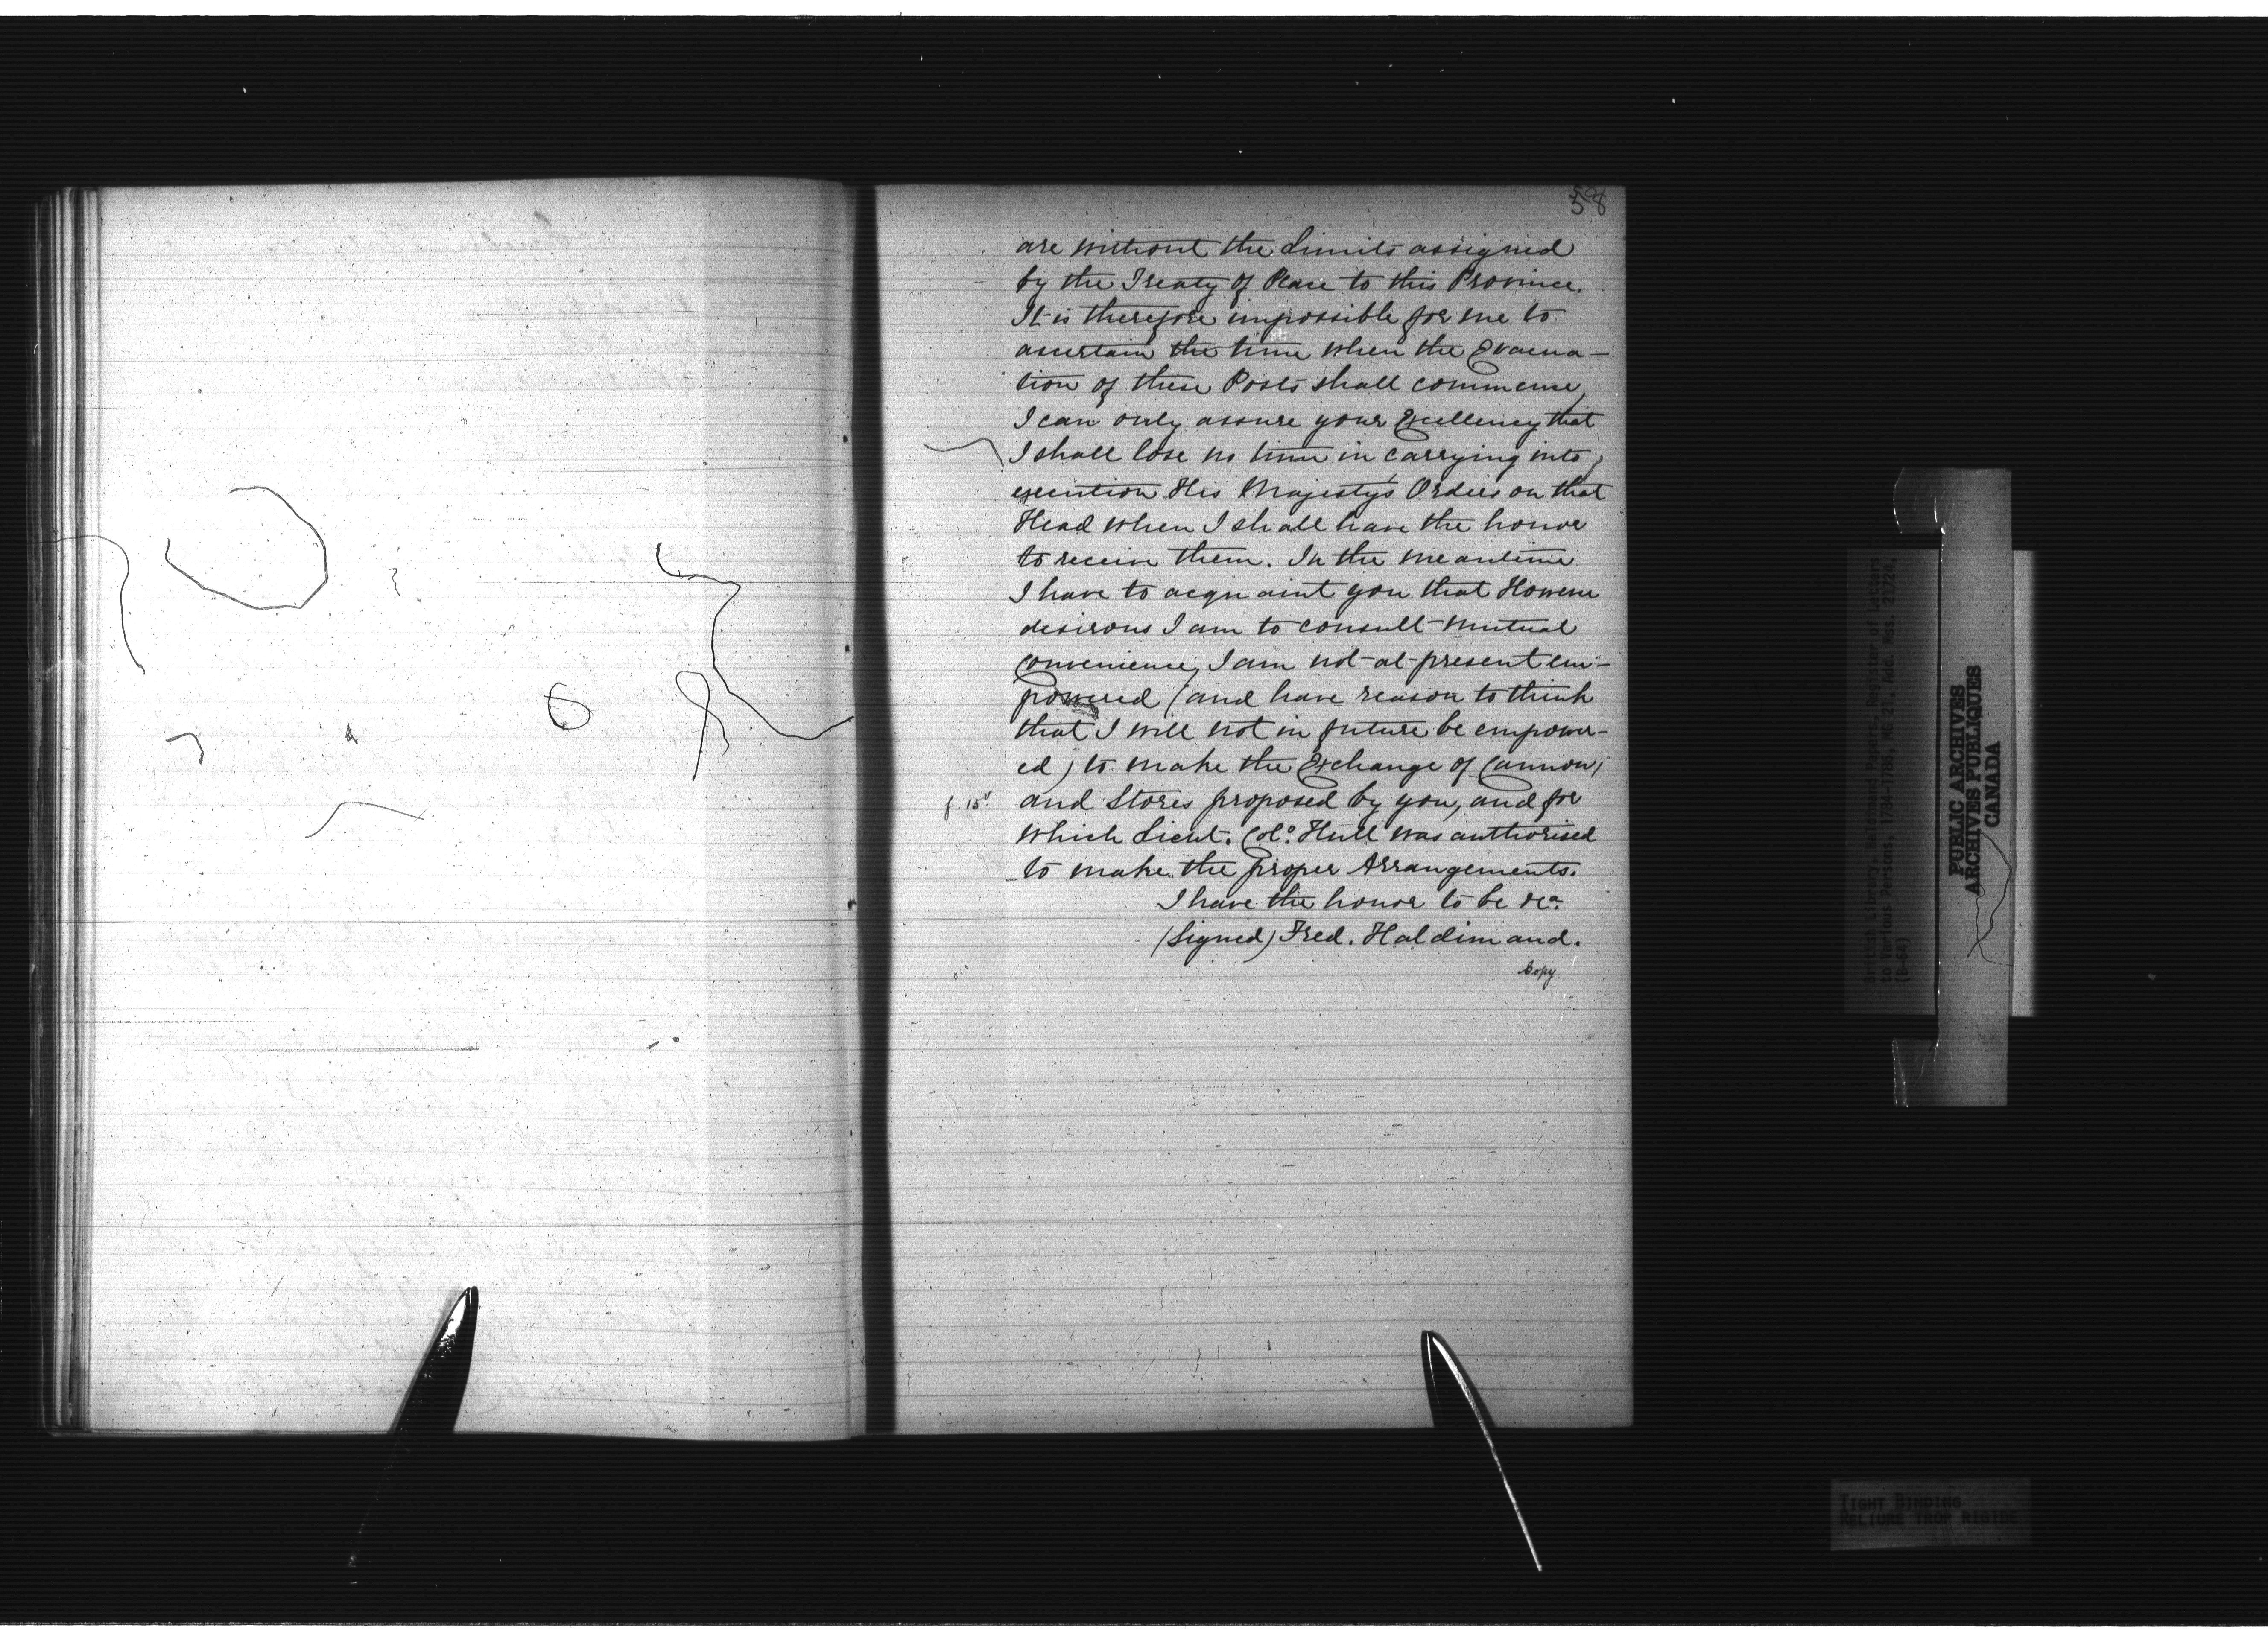 58
are without the Limits assigned
by the Treaty of Peace to this Province.
It is therefore impossible for me to
ascertain the time when the Evacua-
tion of these Posts shall commence,
I can only assure your Excellency that
I shall lose no time in carrying into
execution His Majesty's Orders on that
Head when I shall have the honor
to receive them. In the meantime
I have to acquaint you that However
desirous I am to consult mutual
Convenience, I am not at present em-
powered (and have reason to think
that I will not in future be empower-
ed) to make the Exchange of Cannon,
f. 15v. and Stores proposed by you, and for
which Lieut. Colo. Hull was authorised
to make the proper Arrangements.
I have the honor to be &ca.
(Signed) Fred. Haldimand.
Copy.
British Library, Haldimand Papers, Register of Letters
to Various Persons, 1784-1786, MG 21, Add. Mss. 21724,
(B-64)
PUBLIC ARCHIVES
ARCHIVES PUBLIQUES
CANADA
TIGHT BINDING
RELIURE TROP RIGIDE